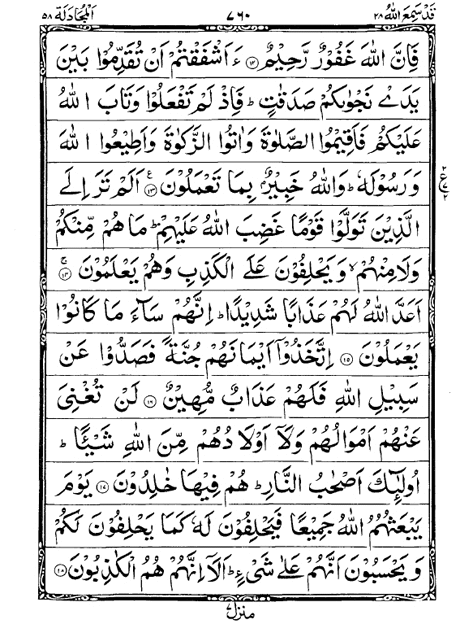 قَدْ سَمِعَ اللّٰهُ ٢٨
٧٦٠
اَلْمُجَادَلَة ٥٨
فَاِنَّ اللّٰهَ غَفُوْرٌ رَّحِيْمٌ ﴿١٢﴾ ءَاَشْفَقْتُمْ اَنْ تُقَدِّمُوْا بَيْنَ
يَدَيْ نَجْوٰىكُمْ صَدَقٰتٍ ؕ فَاِذْ لَمْ تَفْعَلُوْا وَتَابَ اللّٰهُ
عَلَيْكُمْ فَاَقِيْمُوا الصَّلٰوةَ وَاٰتُوا الزَّكٰوةَ وَاَطِيْعُوا اللّٰهَ
وَرَسُوْلَهٗ ؕ وَاللّٰهُ خَبِيْرٌۢ بِمَا تَعْمَلُوْنَ ﴿١٣﴾ اَلَمْ تَرَ اِلَى
الَّذِيْنَ تَوَلَّوْا قَوْمًا غَضِبَ اللّٰهُ عَلَيْهِمْ ؕ مَا هُمْ مِّنْكُمْ
وَلَا مِنْهُمْ ۙ وَيَحْلِفُوْنَ عَلَى الْكَذِبِ وَهُمْ يَعْلَمُوْنَ ﴿١٤﴾
اَعَدَّ اللّٰهُ لَهُمْ عَذَابًا شَدِيْدًا ؕ اِنَّهُمْ سَآءَ مَا كَانُوْا
يَعْمَلُوْنَ ﴿١٥﴾ اِتَّخَذُوْۤا اَيْمَانَهُمْ جُنَّةً فَصَدُّوْا عَنْ
سَبِيْلِ اللّٰهِ فَلَهُمْ عَذَابٌ مُّهِيْنٌ ﴿١٦﴾ لَنْ تُغْنِيَ
عَنْهُمْ اَمْوَالُهُمْ وَلَاۤ اَوْلَادُهُمْ مِّنَ اللّٰهِ شَيْـًٔا ؕ
اُولٰٓئِكَ اَصْحٰبُ النَّارِ ؕ هُمْ فِيْهَا خٰلِدُوْنَ ﴿١٧﴾ يَوْمَ
يَبْعَثُهُمُ اللّٰهُ جَمِيْعًا فَيَحْلِفُوْنَ لَهٗ كَمَا يَحْلِفُوْنَ لَكُمْ
وَيَحْسَبُوْنَ اَنَّهُمْ عَلٰى شَيْءٍ ؕ اَلَاۤ اِنَّهُمْ هُمُ الْكٰذِبُوْنَ ﴿١٨﴾
منزل ٧